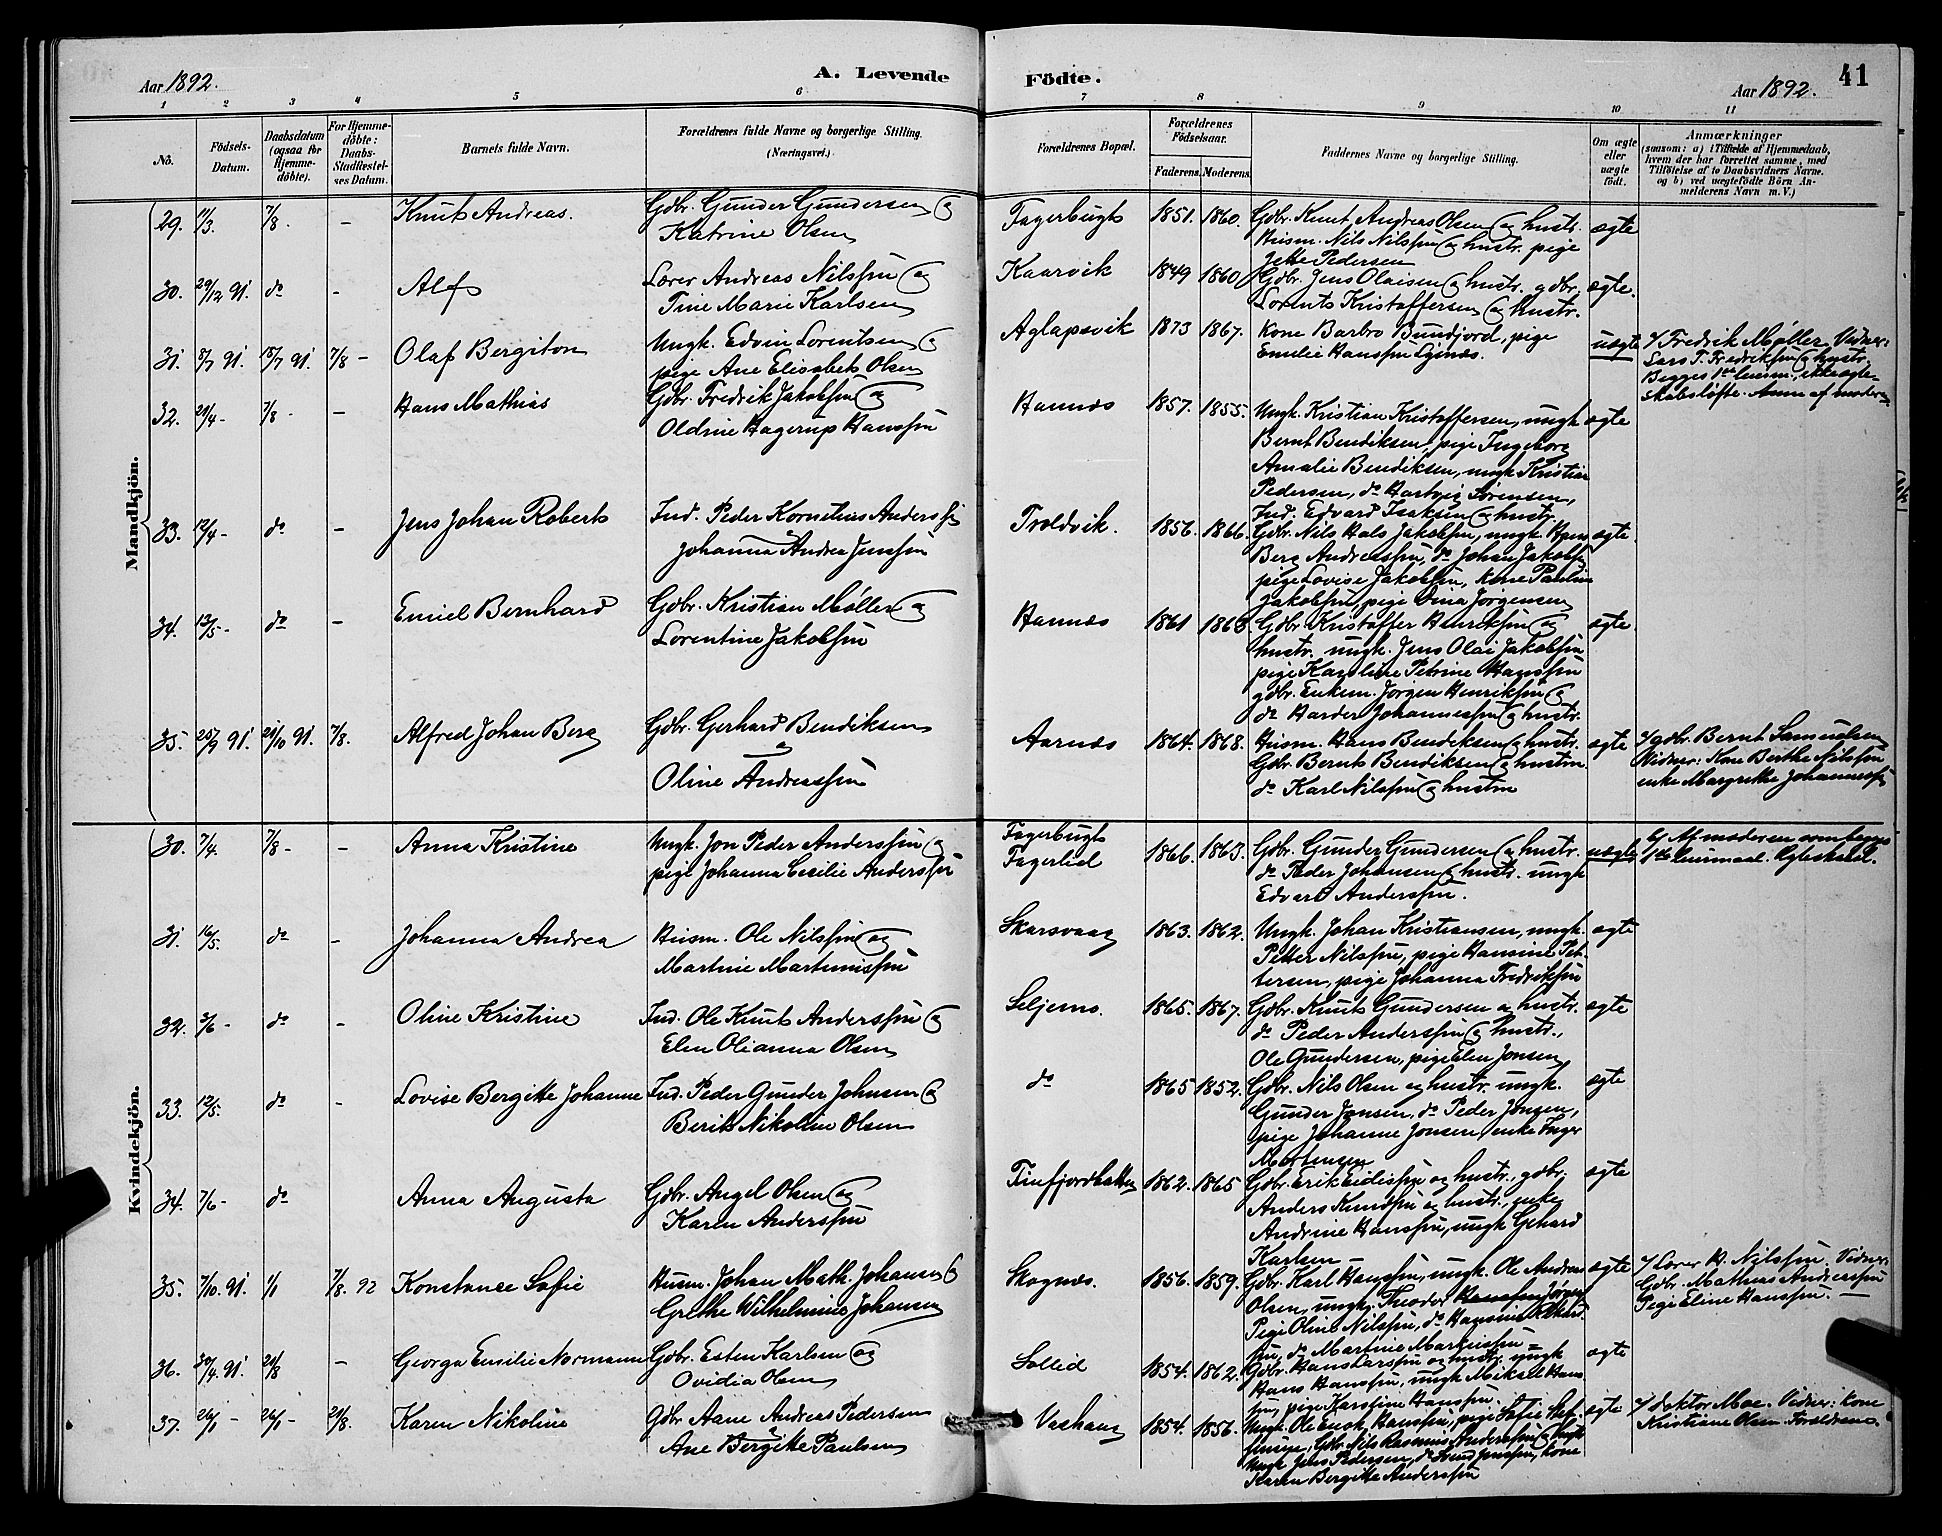 Aar 1892.
A. Levende
Födte.
Aar 1892.
41
1 2 3 4 5 6 7 8 9 10 11
No.
Födsels-Datum.
Daabsdatum (ogsaa for Hjemmedöbte).
For Hjemmedöbte: Daabs-Stadfæstelses Datum.
Barnets fulde Navn.
Forældrenes fulde Navne og borgerlige Stilling.
(Næringsvei.)
Forældrenes Bopæl.
Forældrenes Födselsaar.
Faderens. Moderens.
Faddernes Navne og borgerlige Stilling.
Om ægte eller uægte födt.
Anmærkninger
(saasom: a) i Tilfælde af Hjemmedaab,
hvem der har forrettet samme, med
Tilföielse af to Daabsvidners Navne.
og b) ved uægtefödte Börn An-
melderens Navn m. V.)
Mandkjön.
29. 11/3. 7/8. – Knut Andreas. Gdbr. Gunder Gundersen og Fagerbugt 1851. 1860. Gdbr. Knut Andreas Olsen og hustr. ægte
Katrine Olsen Husm. Nils Nilssen og hustr. pige
Jette Pedersen
30. 29/12 91. do – Alf Lærer Andreas Nilssen og Kaarvik 1849 1860 Gdbr. Jens Olaisen og hustr. gdbr. ægte.
Tine Marie Karlsen Lorents Kristoffersen og hustr.
31. 8/7 91. 15/7 91. 7/8 – Olaf Bergiton Ungk. Edvin Lorentsen og Aglapsvik 1873 1867. Kone Barbro Bundfjord, pige uægte Fredrik Møller. Vidner:
pige Ane Elisabet Olsen Emilie Hanssen Lars T. Fredriksen og hustr.
Begges 1ste leierm.
32. 21/4 – 7/8 – – Hans Mathias Gdbr. Fredrik Jakobsen og Hannæs 1857. 1855. Ungk. Kristian Kristoffersen, ungk. ægte
Oldine Hagerup Hanssen Bernt Bendiksen, pige Ingeborg
Amalie Bendiksen, ungk. Kristian
Pedersen, do Hartvig Sørensen,
33. 12/4 – do – Jens Johan Robert Ind. Peder Kornelius Anderss. og Troldvik. 1856. 1866. Ind. Edvard Isaksen og hustr. ægte.
Johanna Andrea Jenssen Gdbr. Nils Hals Jakobsen, ungk.
Berg Andreassen, do Johan Jakobs.
pige Lovise Jakobsen, kone Pauline
Jakobsen, pige Dina Jørgensen
34. 13/5 – do – Emiel Bernhard Gdbr. Kristian Møller og Hannæs 1861 1863 Gdbr. Kristoffer Henriksen og ægte
Lorentine Jakobsen hustr. ungk. Jens Olai Jakobsen
pige Karoline Petrine Hanssen
gdbr. Enkem. Jørgen Henriksen og
do Harder Johannessen og hustr.
35. 25/9 91. 21/10 91. 7/8. Alfred Johan Berg Gdbr. Gerhard Bendiksen Aarnæs 1864. 1868. Husm. Hans Bendiksen og hustr. ægte gdbr. Bernt Samuelsen
og Gdbr. Bernt Bendiksen og hustru Vidner: Kone Berthe Nilssen
Oline Andreassen do Karl Nilssen og hustru enke Margrethe Johanness.
Kvindekjön.
30. 7/4. 7/8 – – Anna Kristine Ungk. Jon Peder Anderssen og Fagerbugt 1866. 1863. Gdbr. Gunder Gundersen og hustr. uægte Af moderen som begges
pige Johanna Cecilie Anderssen Fagerlid do Peder Johansen og hustr. ungk. 1ste leiermaal.
Edvart Anderssen.
31. 16/5. do – Johanna Andrea Husm. Ole Nilssen og Skarsvaag 1863. 1862. Ungk. Johan Kristiansen, ungk. ægte
Martine Martinussen Petter Nilssen, pige Hansine Pet-
tersen, pige Johanna Fredriksen
32. 3/6 – do – Oline Kristine Ind. Ole Knut Anderssen og Seljenes. 1865. 1867. Gdbr. Knut Gundersen og hustr. ægte
Elen Olianna Olsen do Peder Anderssen og hustr.,
Ole Gundersen, pige Elen Jonsen
33. 12/5. do – Lovise Bergitte Johanne Ind. Peder Gunder Johnsen og do 1865 1852. Gdbr. Nils Olsen og hustr. ungk. ægte
Berit Nikoline Olsen Gunder Jonsen, do Peder Jonsen,
pige Johanne Jonsen, enke Inger
Mortensen
34. 7/6 – do Anna Augusta Gdbr. Angel Olsen og Finfjordbotten 1862. 1865 Gdbr. Erik Eidissen og hustr., gdbr. ægte
Karen Anderssen Anders Knudsen og hustr., enke
Andrine Hanssen, ungk. Gehard
Karlsen
35. 7/10 91. 1/1 7/8. 92 Konstance Sofie Husm. Johan Math. Johansen og Skognæs. 1856. 1859. Gdbr. Karl Hanssen, ungk. Ole Andreas ægte Lærer H. Nilssen. Vidner:
Grethe Wilhelmine Johansen Olsen, ungk. Theodor Hanssen Jørgen Gdbr. Mathias Anderssen
Pige Oline Nilssen, do Hansine Pige Eline Hanssen. –
do Martine Martinssen
36. 30/4 91. 21/8 – Georga Emilie Normann Gdbr. Esten Karlsen og Sollid 1854. 1862. Gdbr. Hans Larssen og hustr. ungk. ægte
Ovidia Olsen Hans Hanssen, ungk. Mikal Hans
sen, pige Karoline Hanssen.
37. 26/1 – 26/1 – 21/8. Karen Nikoline Gdbr. Aane Andreas Pedersen Vashaug 1854. 1856. Ungk. Ole Enok Hanssen, pige Sofie ægte doktor Moe. Vidner: Kone
og Ane Bergitte Paulsen Gdbr. Nils Rasmus Anderssen og hustr. Kristiane Olsen. Forældrene
Ungk. Jens Pedersen, kone
Karen Bergitte Anderssen